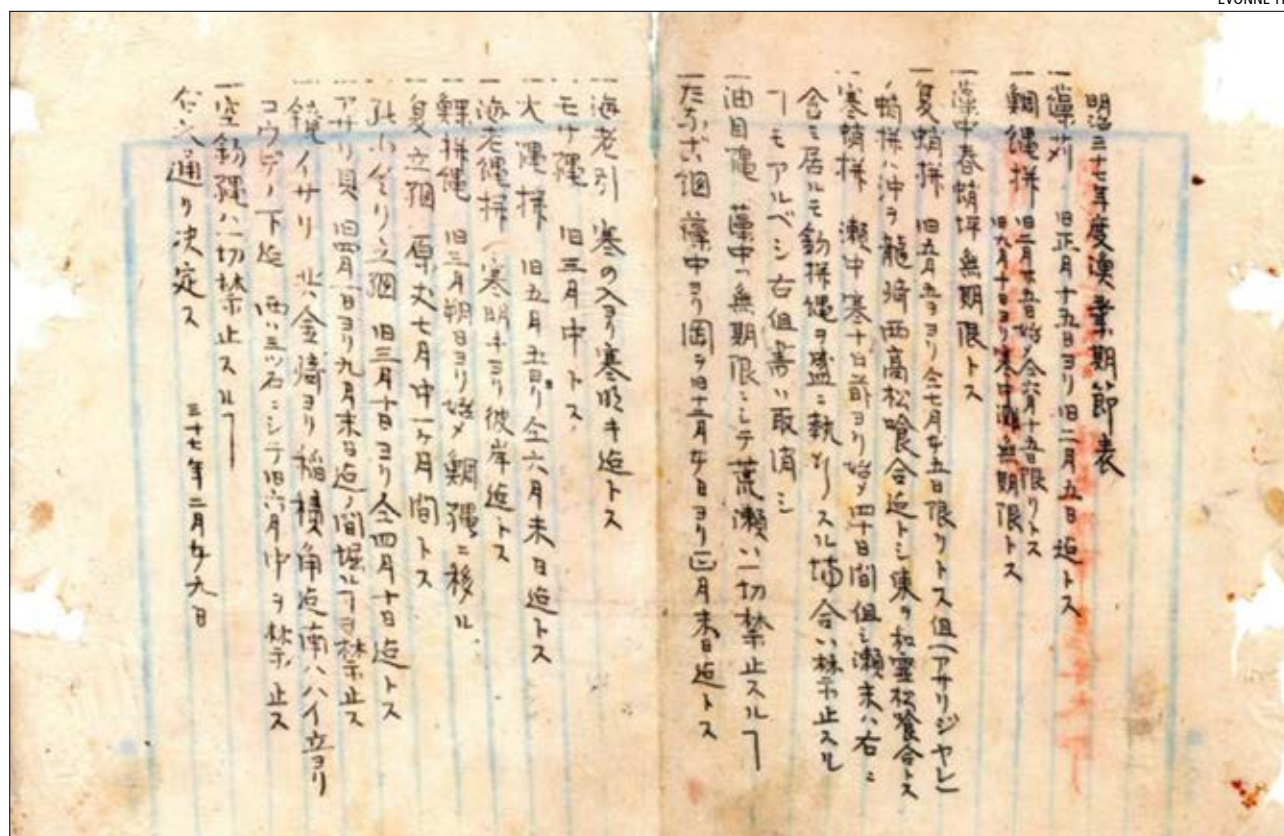 EVONNE
明治三十七年度漁業期節表
一藻刈 旧正月十五日ヨリ旧二月五日迄トス
一鯛縄様
旧九月十日ヨリ寒中 無期限トス
一藻中春蛸坪無期限トス
一夏蛸様 旧五月五日ヨリ仝七月廿五日限リトス但(アサリジヤヒ)
蛸様ハ沖ヲ龍崎西高松喰合迄トシ東ヲ和霊松喰合トス
一寒蛸様 瀬中寒十日前ヨリ始メ四十日間但シ瀬末ハ右ニ
含ミ居ルモ釣様縄ヲ盛ニ執行スル場合ハ禁止スル
ヿモアルベシ右但書ハ取消シ
一油目縄 藻中ハ無期限ニシテ荒瀬ハ一切禁止スルヿ
一たなご網藻中ヨリ 旧十二月廿日ヨリ正月末日迄トス
一海老引 寒の入ヨリ寒明キ迄トス
一モサ縄 旧三月中トス
一大縄様 旧五月五日ヨリ仝六月末日迄トス
一海老縄様 寒明キヨリ彼岸迄トス
一縄 旧三月朔日ヨリ始メ鯛縄ニ移ル
一夏立網 七月中一ヶ月間トス
一 立網 旧三月十日ヨリ仝四月十日迄トス
一アサリ貝 旧四月一日ヨリ九月末日迄ノ間堀ルヿヲ禁止ス
一鏡イサリ 北ハ金崎ヨリ稲積角迄南ハハイ立ヨリ
コウデノ下迄 西ハ三ツ石ニシテ旧六月中ヲ禁止ス
一空釣縄ハ一切禁止スルヿ
右之通り決定ス
三十七年二月廿九日